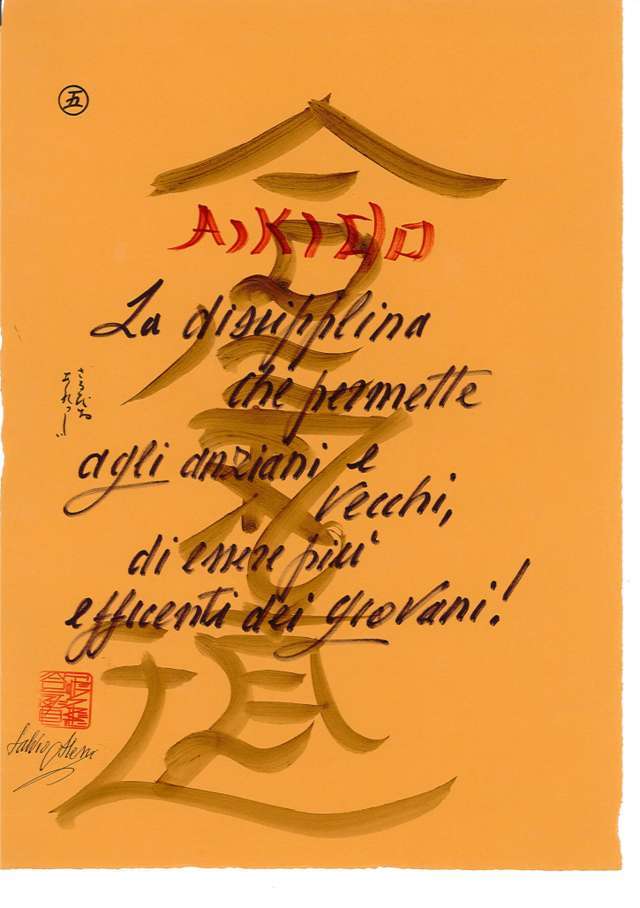 五
合氣道
AIKIDO
La discipplina
che permette
agli anziani e
vecchi,
di essere più
efficenti dei giovani!